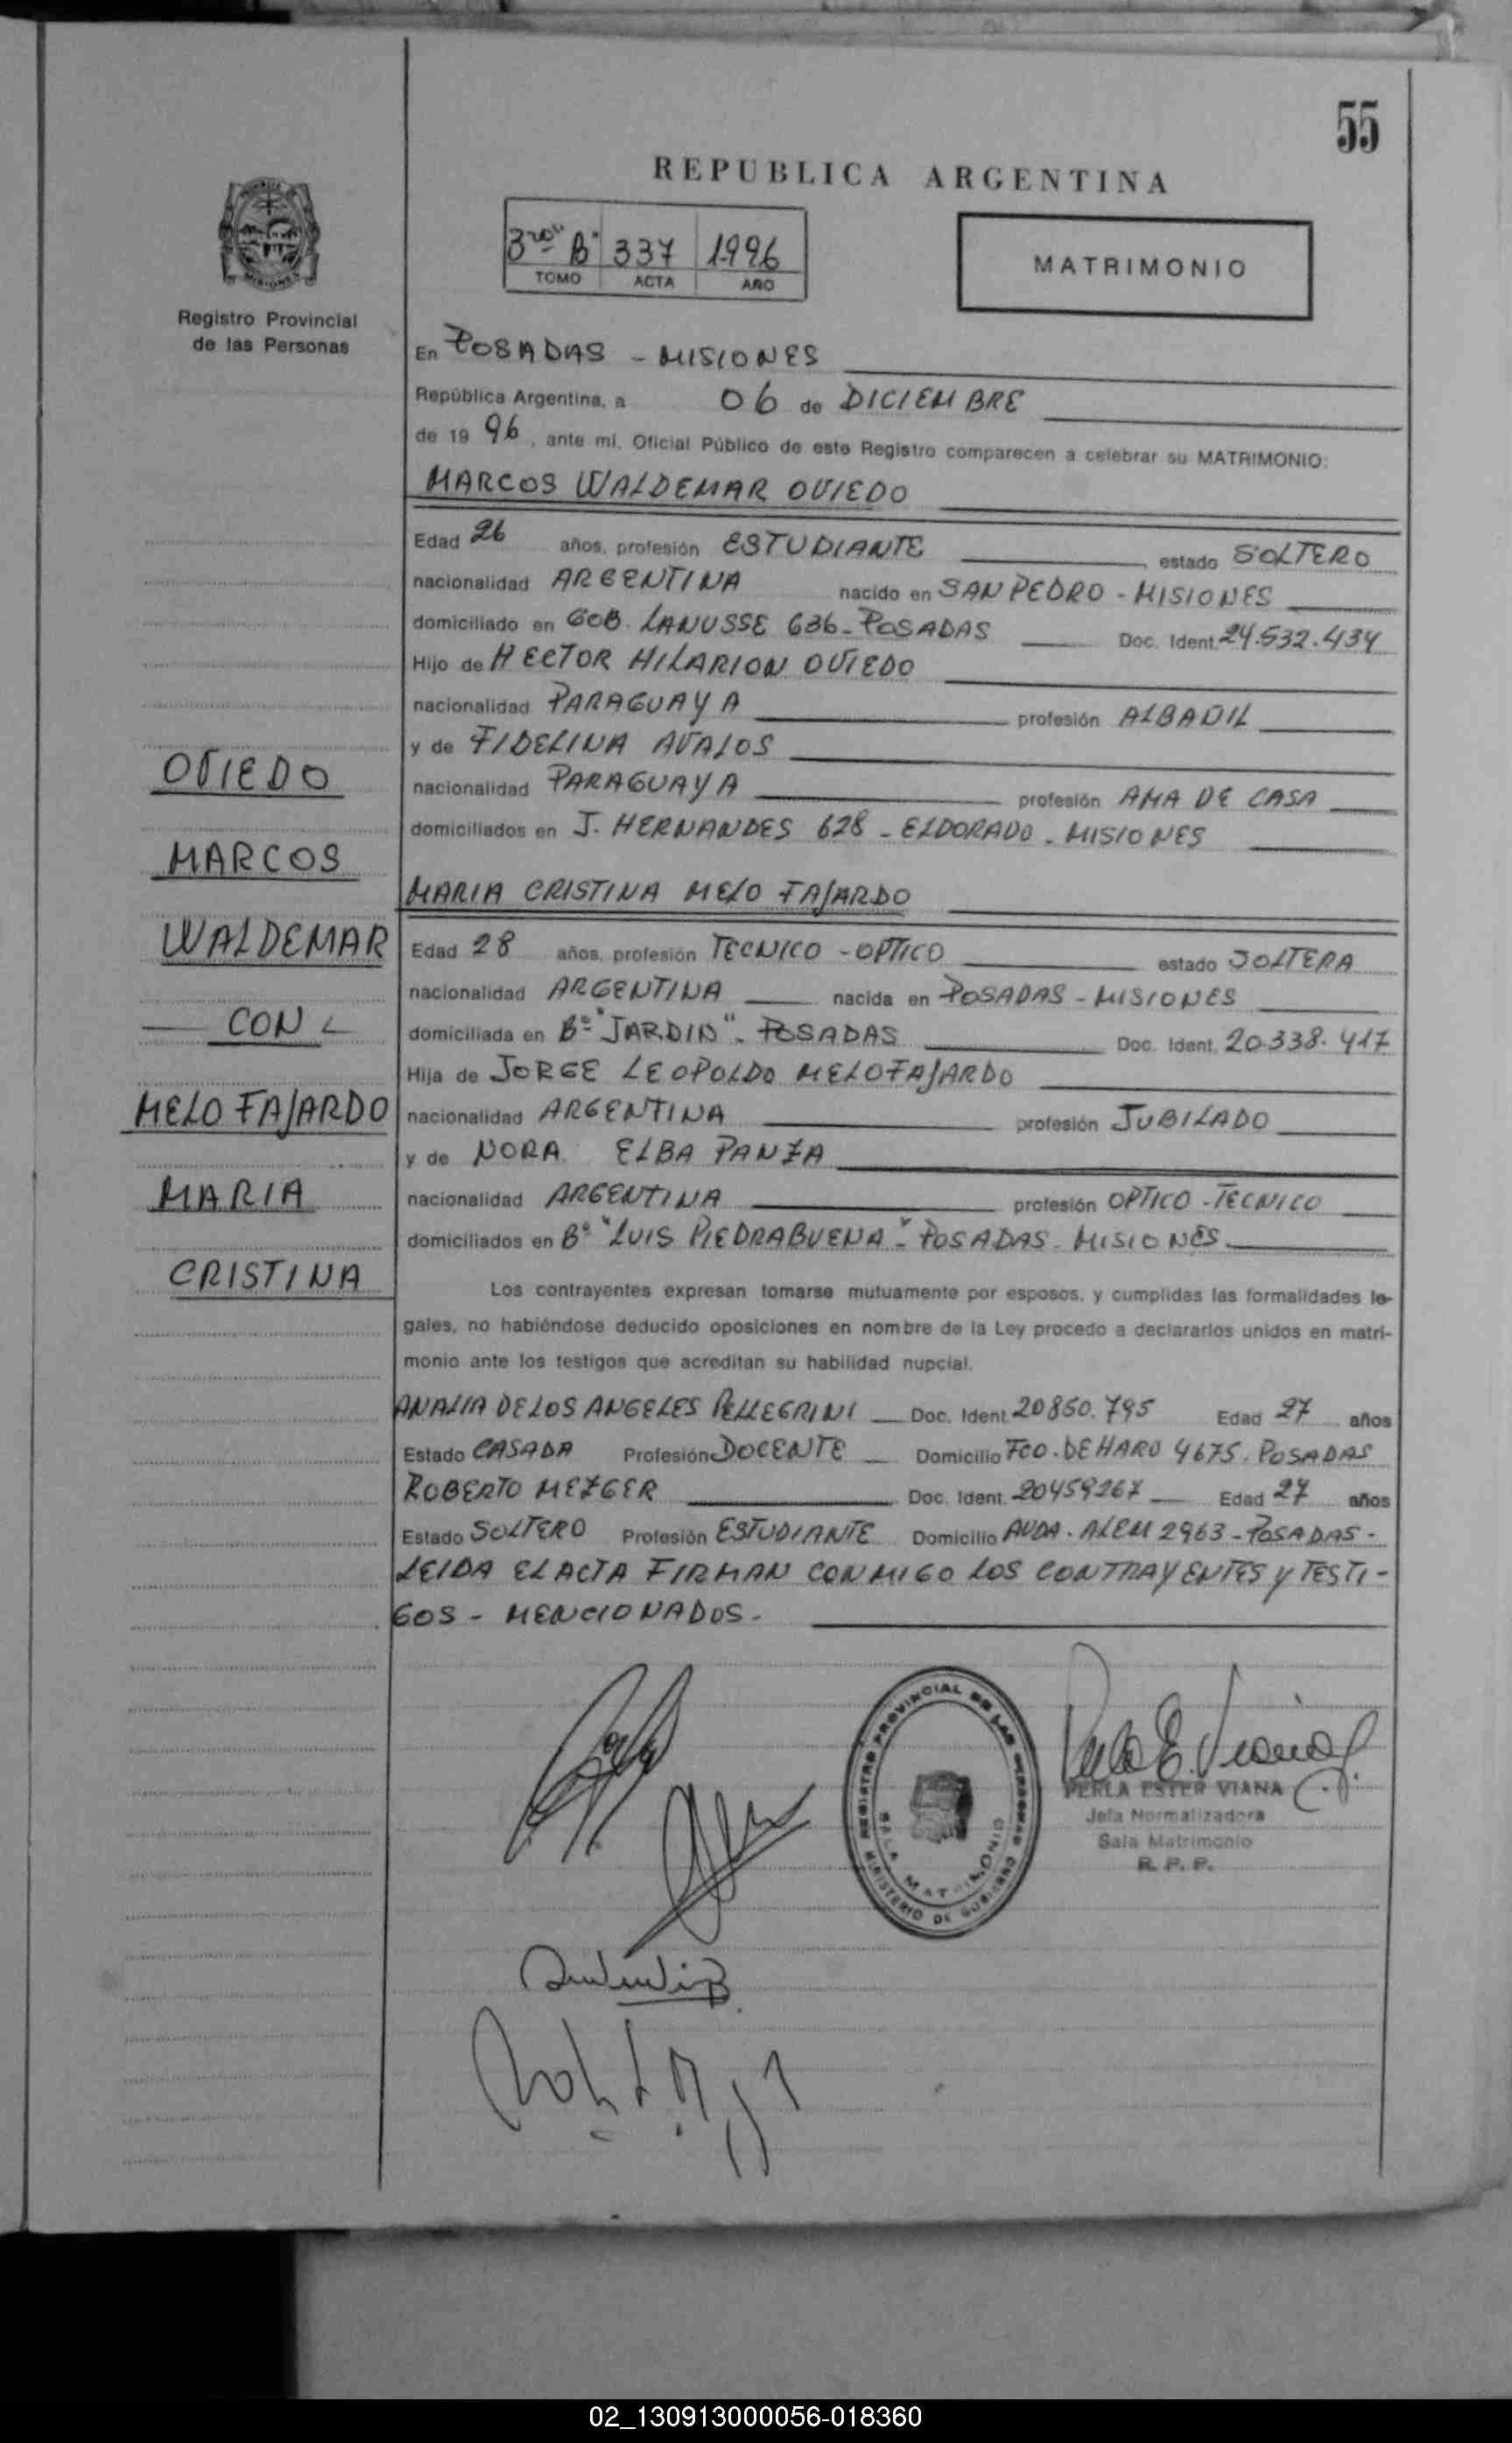 55
REPUBLICA ARGENTINA
3ro "B" 337 1996
TOMO ACTA AÑO
MATRIMONIO
Registro Provincial
de las Personas
En POSADAS - MISIONES
República Argentina, a 06 de DICIEMBRE
de 19 96, ante mí, Oficial Público de este Registro comparecen a celebrar su MATRIMONIO:
MARCOS WALDEMAR OVIEDO
Edad 26 años, profesión ESTUDIANTE estado SOLTERO
nacionalidad ARGENTINA nacido en SAN PEDRO - MISIONES
domiciliado en GOB. LANUSSE 636 - POSADAS Doc. Ident. 24.532.434
Hijo de HECTOR HILARION OVIEDO
nacionalidad PARAGUAYA profesión ALBAÑIL
y de FIDELINA AVALOS
nacionalidad PARAGUAYA profesión AMA DE CASA
domiciliados en J. HERNANDES 628 - ELDORADO - MISIONES
MARIA CRISTINA MELO FAJARDO
Edad 28 años, profesión TECNICO - OPTICO estado SOLTERA
nacionalidad ARGENTINA nacida en POSADAS - MISIONES
domiciliada en B° "JARDIN" - POSADAS Doc. Ident. 20.338.417
Hija de JORGE LEOPOLDO MELO FAJARDO
nacionalidad ARGENTINA profesión JUBILADO
y de NORA ELBA PANZA
nacionalidad ARGENTINA profesión OPTICO - TECNICO
domiciliados en B° "LUIS PIEDRABUENA" - POSADAS - MISIONES
OVIEDO
MARCOS
WALDEMAR
CON
MELO FAJARDO
MARIA
CRISTINA
Los contrayentes expresan tomarse mutuamente por esposos, y cumplidas las formalidades le-
gales, no habiéndose deducido oposiciones en nombre de la Ley procedo a declararlos unidos en matri-
monio ante los testigos que acreditan su habilidad nupcial.
ANALIA DE LOS ANGELES PELLEGRINI Doc. Ident. 20850.795 Edad 27 años
Estado CASADA Profesión DOCENTE Domicilio FCO. DE HARO 4675. POSADAS
ROBERTO MEZGER Doc. Ident. 20459267 Edad 27 años
Estado SOLTERO Profesión ESTUDIANTE Domicilio AVDA. ALEM 2963 - POSADAS -
LEIDA EL ACTA FIRMAN CONMIGO LOS CONTRAYENTES Y TESTI-
GOS - MENCIONADOS.
REGISTRO PROVINCIAL DE LAS PERSONAS
SALA MATRIMONIO
MINISTERIO DE GOBIERNO
PERLA ESTER VIANA
Jefa Normalizadora
Sala Matrimonio
R. P. P.
02_130913000056-018360